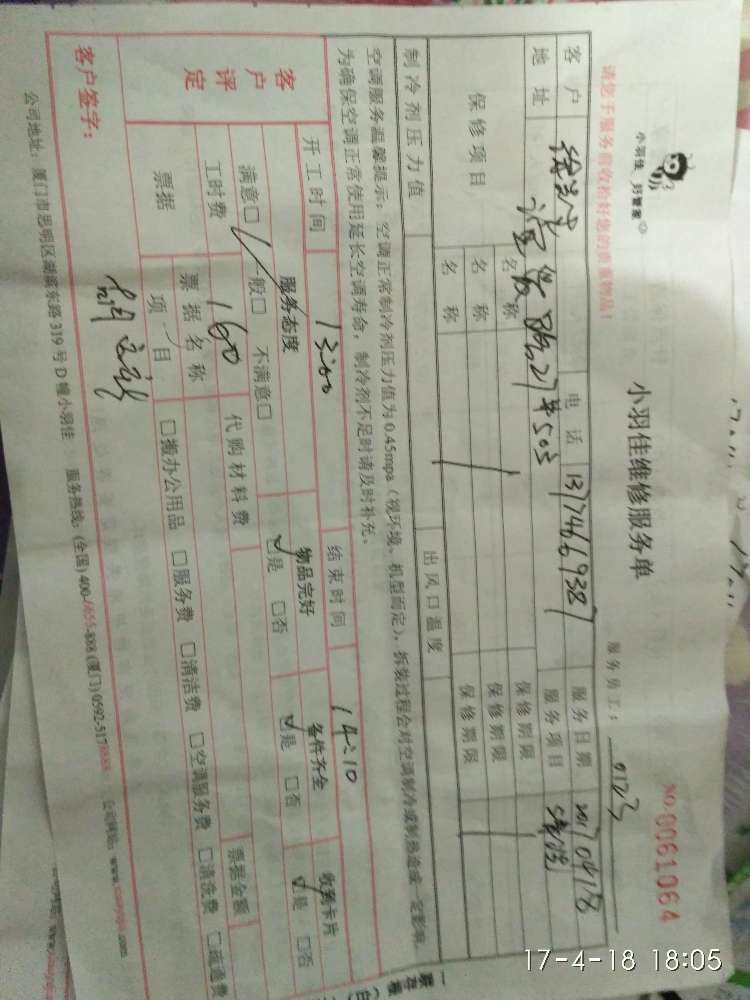 小羽佳 好管家
小羽佳维修服务单
NO.0061064
请您于服务前收拾好您的贵重物品!
服务员工: 0123
客户 电话 13774669387 服务日期 20170418
地址 27#503 服务项目 清洗
保修项目 名称 保修期限
名称 保修期限
名称 保修期限
制冷剂压力值 出风口温度
空调服务温馨提示:空调正常制冷剂压力值为0.45mpa(视环境、机型而定),拆装过程会对空调制冷或制热造成一定影响,
为确保空调正常使用延长空调寿命,制冷剂不足时请及时补充。
开工时间 13:00 结束时间 14:10
客户评定 服务态度 物品完好 备件齐全 收到卡片
满意□ 一般□ 不满意□ □是 □否 □是 □否 □是 □否
工时费 160 代购材料费
票据 票据名称 票据金额
项目 □搬办公用品 □服务费 □清洁费 □空调服务费 □清洗费 □疏通费
客户签字:
公司地址:厦门市思明区湖滨东路319号D幢小羽佳 服务热线:(全国)400-6655-8088(厦门)0592-517 公司网站:www. .com
17-4-18 18:05